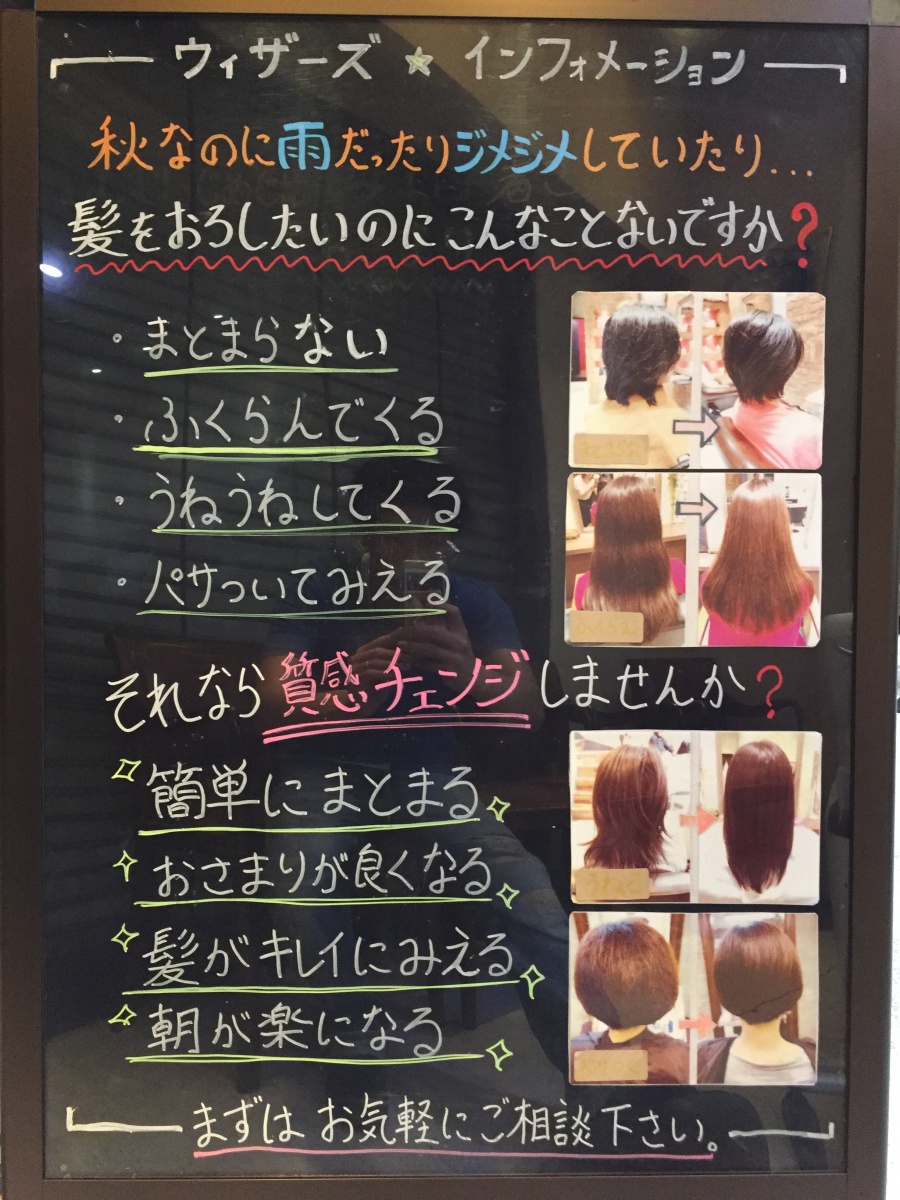 ウィザーズ☆インフォメーション
秋なのに雨だったりジメジメしていたり...
髪をおろしたいのにこんなことないですか?
・まとまらない
・ふくらんでくる
・うねうねしてくる
・パサついてみえる
それなら質感チェンジしませんか?
簡単にまとまる
おさまりが良くなる
髪がキレイにみえる
朝が楽になる
まずはお気軽にご相談下さい。